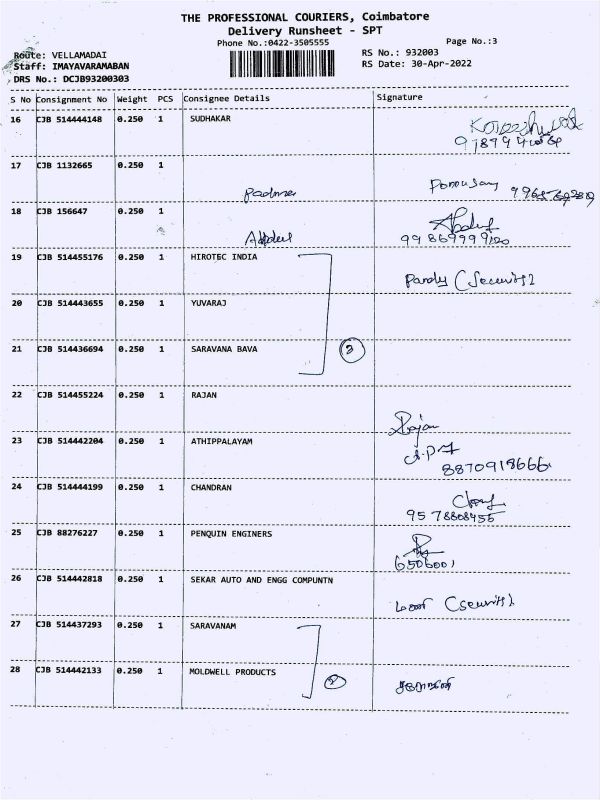 THE PROFESSIONAL COURIERS, Coimbatore
Delivery Runsheet - SPT
Phone No.:0422-3505555 Page No.:3
Route: VELLAMADAI RS No.: 932003
Staff: IMAYAVARAMABAN RS Date: 30-Apr-2022
DRS No.: DCJB93200303
S No Consignment No Weight PCS Consignee Details Signature
16 CJB 514444148 0.250 1 SUDHAKAR
17 CJB 1132665 0.250 1
Padma Ponnusamy
18 CJB 156647 0.250 1
Abdul Abdul
19 CJB 514455176 0.250 1 HIROTEC INDIA
Pandy (Security)
20 CJB 514443655 0.250 1 YUVARAJ
21 CJB 514436694 0.250 1 SARAVANA BAVA 3
22 CJB 514455224 0.250 1 RAJAN
Rajan
23 CJB 514442204 0.250 1 ATHIPPALAYAM
8870918666
24 CJB 514444199 0.250 1 CHANDRAN
9578808455
25 CJB 88276227 0.250 1 PENQUIN ENGINERS
6506001
26 CJB 514442818 0.250 1 SEKAR AUTO AND ENGG COMPUNTN
(Security)
27 CJB 514437293 0.250 1 SARAVANAM
28 CJB 514442133 0.250 1 MOLDWELL PRODUCTS 2